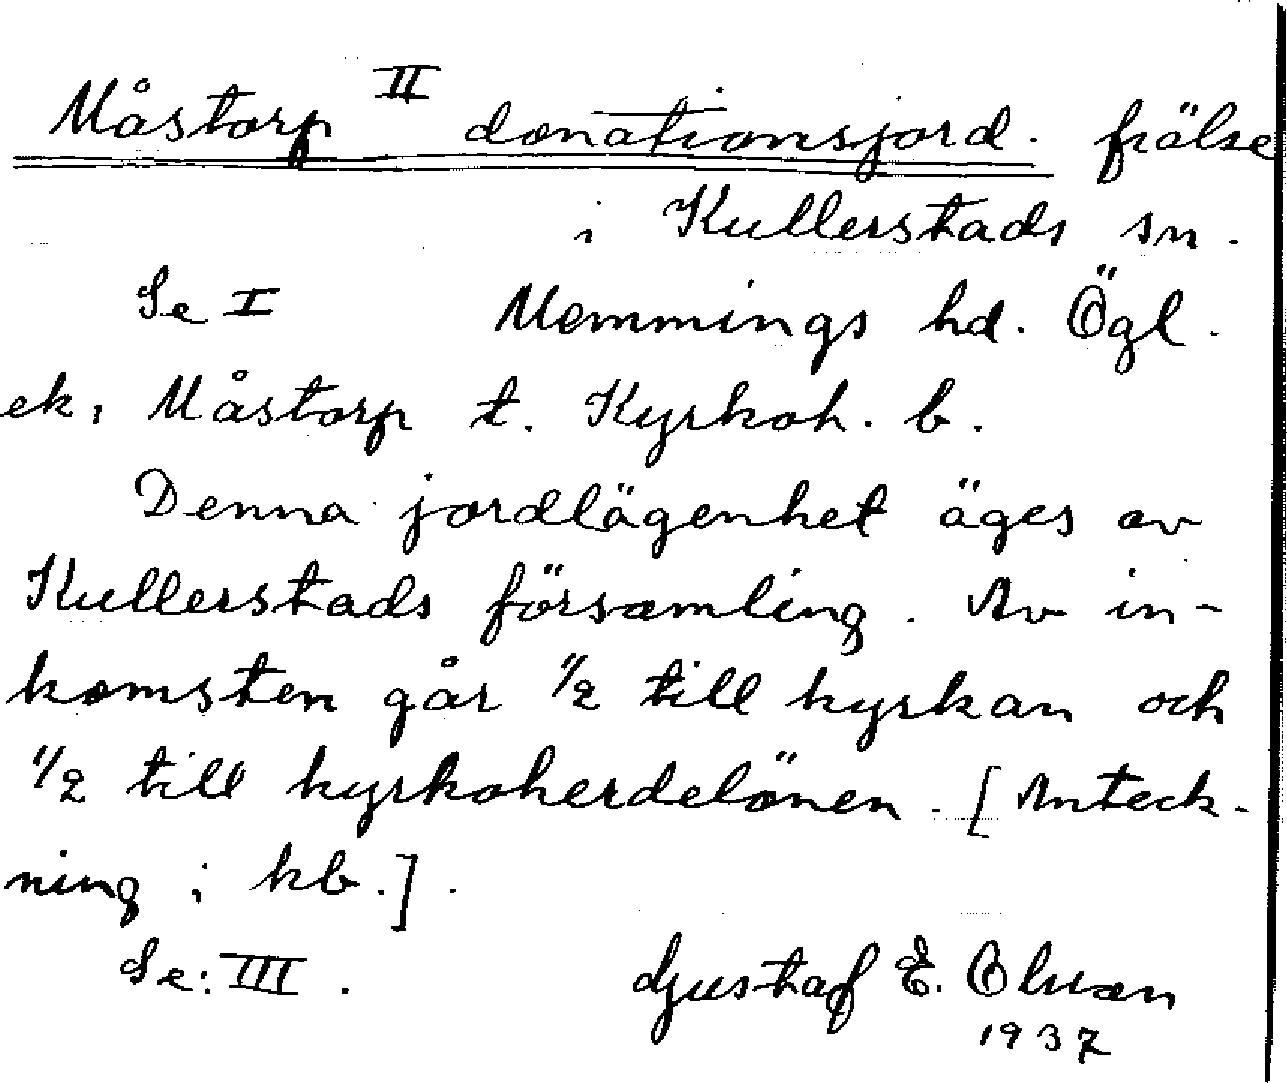 Måstorp II donationsjord. frälse
i Kullerstads sn.
Se I Memmings hd. Ögl.
ek, Måstorp t. Kyrkoh. b.
Denna jordlägenhet äges av
Kullerstads församling. Av in-
komsten går 1/2 till kyrkan och
1/2 till kyrkoherdelönen. [Anteck-
ning i kb.].
Se: III. Gustaf E.
1937